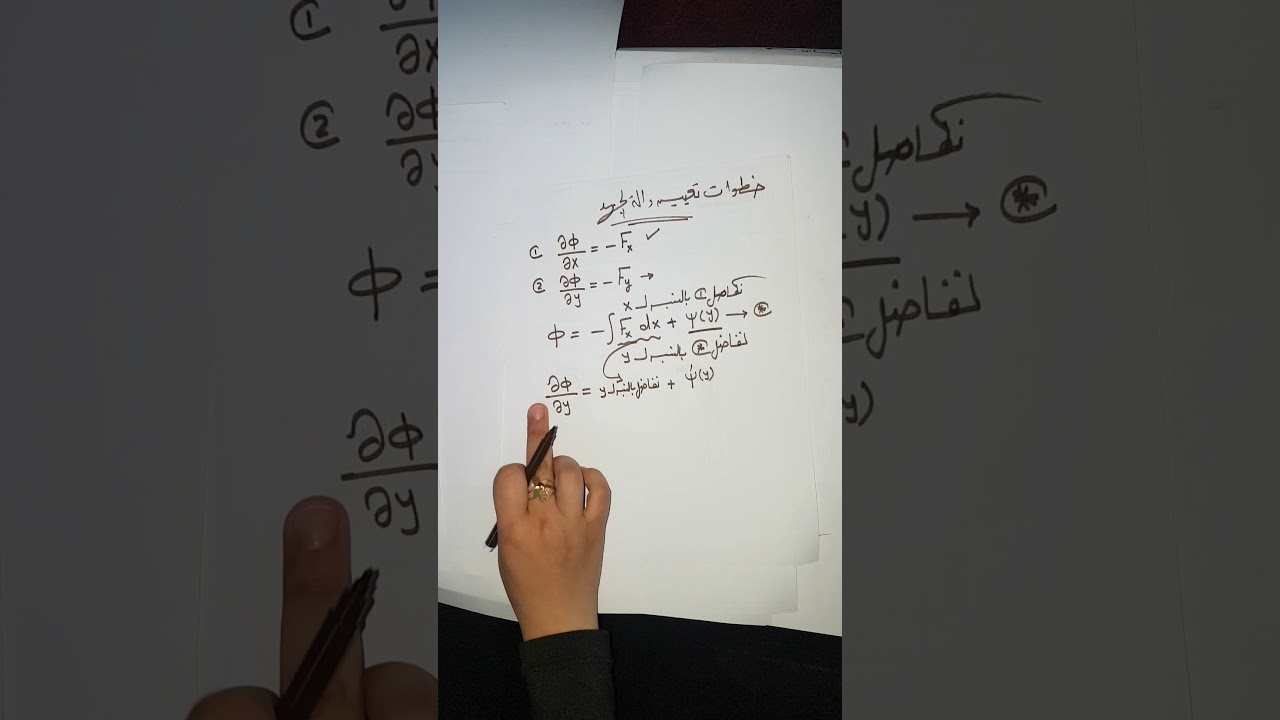 خطوات تعيين دالة الجهد
① ∂ϕ/∂x = − Fx ✓
② ∂ϕ/∂y = − Fy →
نكامل ① بالنسبه لـ x
ϕ = − ∫ Fx dx + ψ(y) → ⊛
نفاضل ⊛ بالنسبه لـ y
∂ϕ/∂y = نفاضل بالنسبه لـ y + ψ′(y)